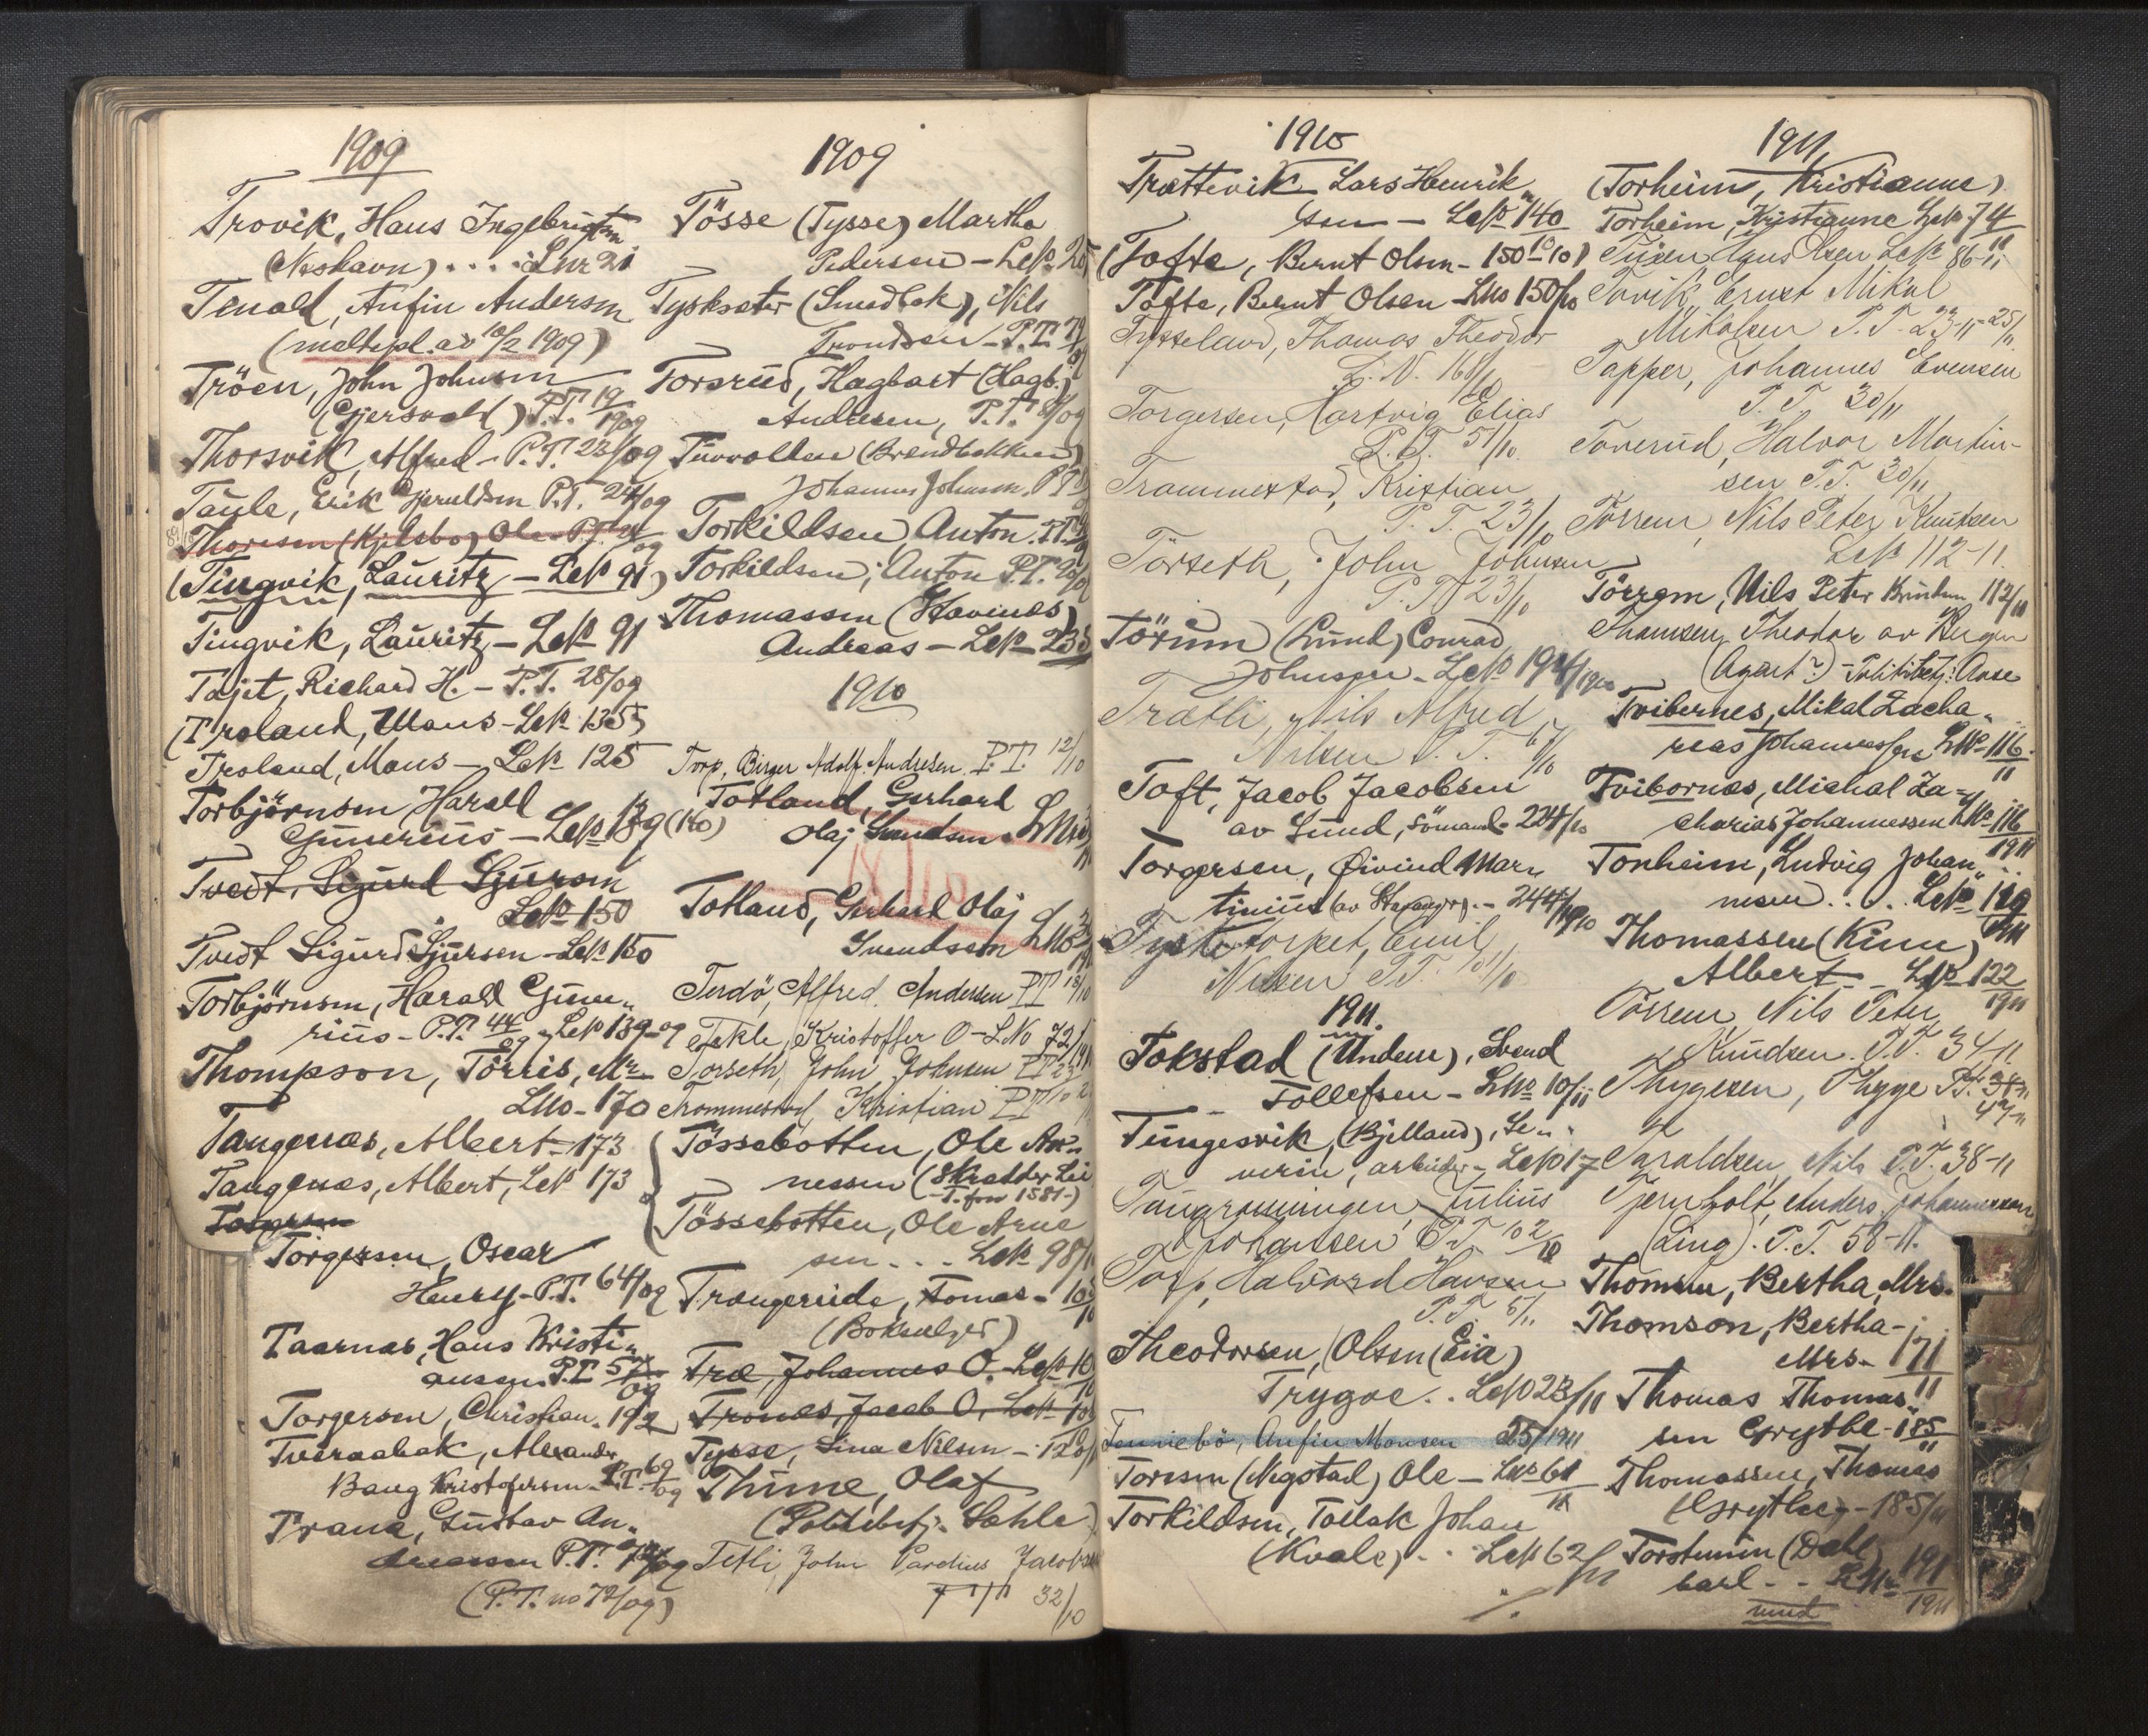 1909
Trovik, Hans Ingebrigtsen
(Neshavn) . . . . Lnr 21
Tenold, Anfin Andersen
(meltepl. av 10/2 1909)
Tröen, John Johnsen
(Gjersvold) P.T. 19/1909
Thorsvik, Alfred - P.T. 23/09
Taule, Erik Gjeruldsen P.T. 24/09
Thoresen (Kjilsbo) Ole - P.T. 24/09
(Tingvik, Lauritz - L№ 91)
Tingvik, Lauritz - L№ 91
Tajet, Richard H. - P.T. 28/09
(Troland, Mons - L№ 135)
Troland, Mons - L№ 125
Torbjörnsen Harall
Gunerius - L№ 139 (140)
Tvedt, Sigurd Sjursen
L№ 150
Tvedt Sigurd Sjursen - L№ 150
Torbjörnsen, Harald Gune„
rius - P.T. 44/09 - L№ 139-09
Thompson, Törris, Mr.
L№ - 170
Tangenæs, Albert - 173
Tangenæs, Albert, L№ 173
Torgersen
Torgersen, Oscar
Henry - P.T. 64/09
Taarnæs, Hans Kristi„
ansen. P.T. 57/09
Torgersen, Christian. 192
Tveraabak, Alexander
Bang Kristofersen - P.T. 69/09
Trana, Gustav An„
dreassen P.T. 72/09
(P.T. no 72/09)
1909
Tösse (Tysse) Martha
Pedersen - L№ 25
Tysksæter (Smedbak), Nils
Trondsen - P.T. 79
Torsrud, Hagbart (Hagb.)
Andresen, P.T. 8/09
Tuvvolden (Brendbakken)
Johannes Johnsen, P.T.
Torkildsen, Anton. P.T.
Torkildsen, Anton P.T.
Thomassen (Stavenes)
Andreas - L№ 235
1910
Torp, Birger Adolf Andresen P.T. 12/10
Totland, Gerhard
Olaj Svendsen - L№
18/10
Totland, Gerhard Olaj
Svendsen L№ 3
Terdö, Alfred. Andersen P.T. 18/10
Tekle, Kristoffer O - L.No 72/
Torseth, John Johnsen P.T. 23
Trommestad, Kristian P.T.
Tössebotten, Ole Ar„
nessen (Skrædder Lei
- T. frn 1581 -)
Tössebotten, Ole Arne
sen . . . L№ 98/
Trængereide, Tomas - 105/10
(Boksælger)
Træ, Johannes O. L№ 10
Trones, Jacob O, L№
Tysse, Lina Nilsen - 120/
Thune, Olaf
(Politibetj. Sahle)
Tetli, John Parelius Jacobsen
P.T. 32/10
1910
Trættevik Lars Henrik„
sen - L№ 140
(Tofte, Bernt Olsen - 150 - 10)
Tofte, Bernt Olsen - L№ 150/10
Tysseland, Thomas Theodor
L. N. 168/10
Torgersen, Hartvig Elias
P. T. 51/10.
Trommestad, Kristian
P. T. 23/10
Törseth, John Johnsen
P. T. 23/10
Töxum (Lund) Conrad
Johnsen - L№ 194/1910
Trætli, Nils Alfred
Nilsen P. T. 67/10
Toft, Jacob Jacobsen
av Sund, sömand - 224/10
Torgersen, Øivind Mar„
tinius (av Stavanger) - 244/1910
Tysktorpet, Emil
Nilsen P.T. 101/10
1911.
Tokstad (Undem), Svend
Tollefsen - L№ 10/11
Tungesvik, (Bjelland), Se„
verin, arbeider - L№ 17
Tangrønningen, Julius
Johansen P.T. 102/10
Torp, Halvard Hansen
P.T. 6/11
Theodorsen, (Olsen (Eia)
Trygve . . L№ 23/11
Tenniebö, Anfin Monsen 25/1911
Toresen (Negstad) Ole - L№ 61/11
Torkildsen, Tollak Johan
(Kvale) . . L№ 62/11
1911
(Torheim, Kristianne)
Torheim, Kristianne L№ 74/11
Tuxen Olsen L№ 86-11
Tovik Ernst Mikal
Mikalsen P. T. 23-11-25/11
Tapper, Johannes Evensen
P. T. 30/11
Toverud, Halvor Martin-
sen P.T. 30/11
Torrem, Nils Peter Knutsen
L№ 112-11.
Törrem, Nils Peter Knutsen 112/11
Thomsen, Theodor av Bergen
(Agart?) - Politibetj: Aase
Tvibernes, Mikal Zacha„
rias Johannessen L№ 116/11
Tvibornes, Michal Za„
charias Johannessen L№ 116/1911
Tonheim, Ludvig Johan„
nesen . . . L№ 119/1911
Thomassen (Kinn)
Albert - L№ 122/1911
Törrem Nils Peter
Knudsen. P.T. 34-11
Thygesen, Thygge P.T. 38-11
42-11
Taraldsen, Nils P.T. 38-11
Tjernholt, Anders Johannessen
(Ling). P.T. 58-11.
Thomsen, Bertha, Mrs.
Thomson, Bertha -
Mrs - 171/11
Thomas Thomas„
sen Grytbe - 185/11
Thomassen, Thomas
(Grytbe) - 185/11
Torstensen (Dahl)
Carl - - L№ 191/1911
vend